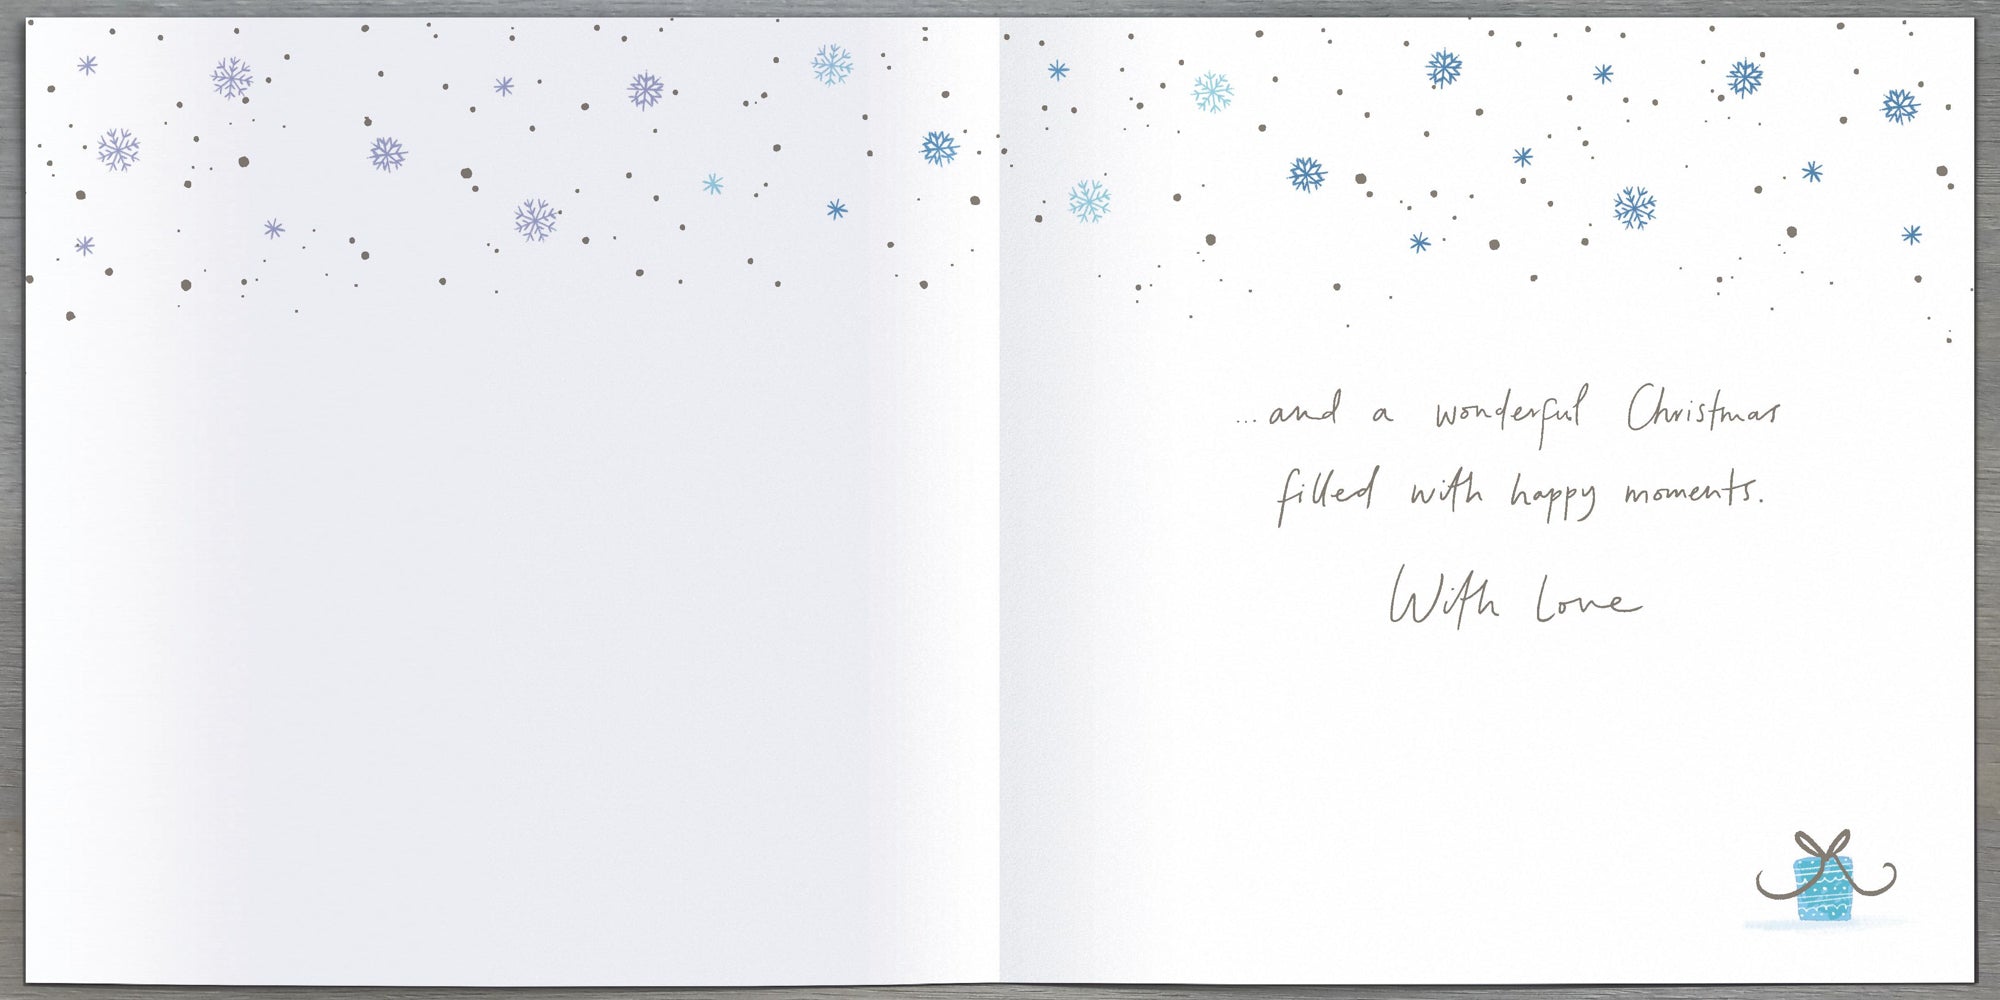 ...and a wonderful Christmas
filled with happy moments.
With Love